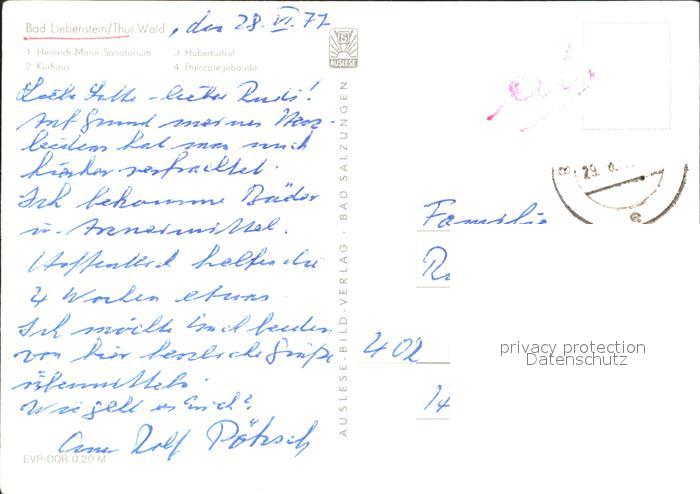 Bad Liebenstein/Thür. Wald, den 28. VI. 77
1 Heinrich-Mann-Sanatorium 3 Hubertushof
2 Kurhaus 4 Therapiegebäude
Liebe Lotte - lieber Rudi!
Auf Grund meines Herz-
leidens hat man mich
hierher verfrachtet.
Ich bekomme Bäder
u. Arzneimittel.
Hoffentlich helfen die
4 Wochen etwas
Ich möchte Euch beiden
von hier herzliche Grüße
übermitteln.
Wie geht es Euch?
Rolf Pötzsch
EVP-DDR 0,20 M
AUSLESE
AUSLESE-BILD-VERLAG · BAD SALZUNGEN
29.
Familie
402
14
privacy protection
Datenschutz